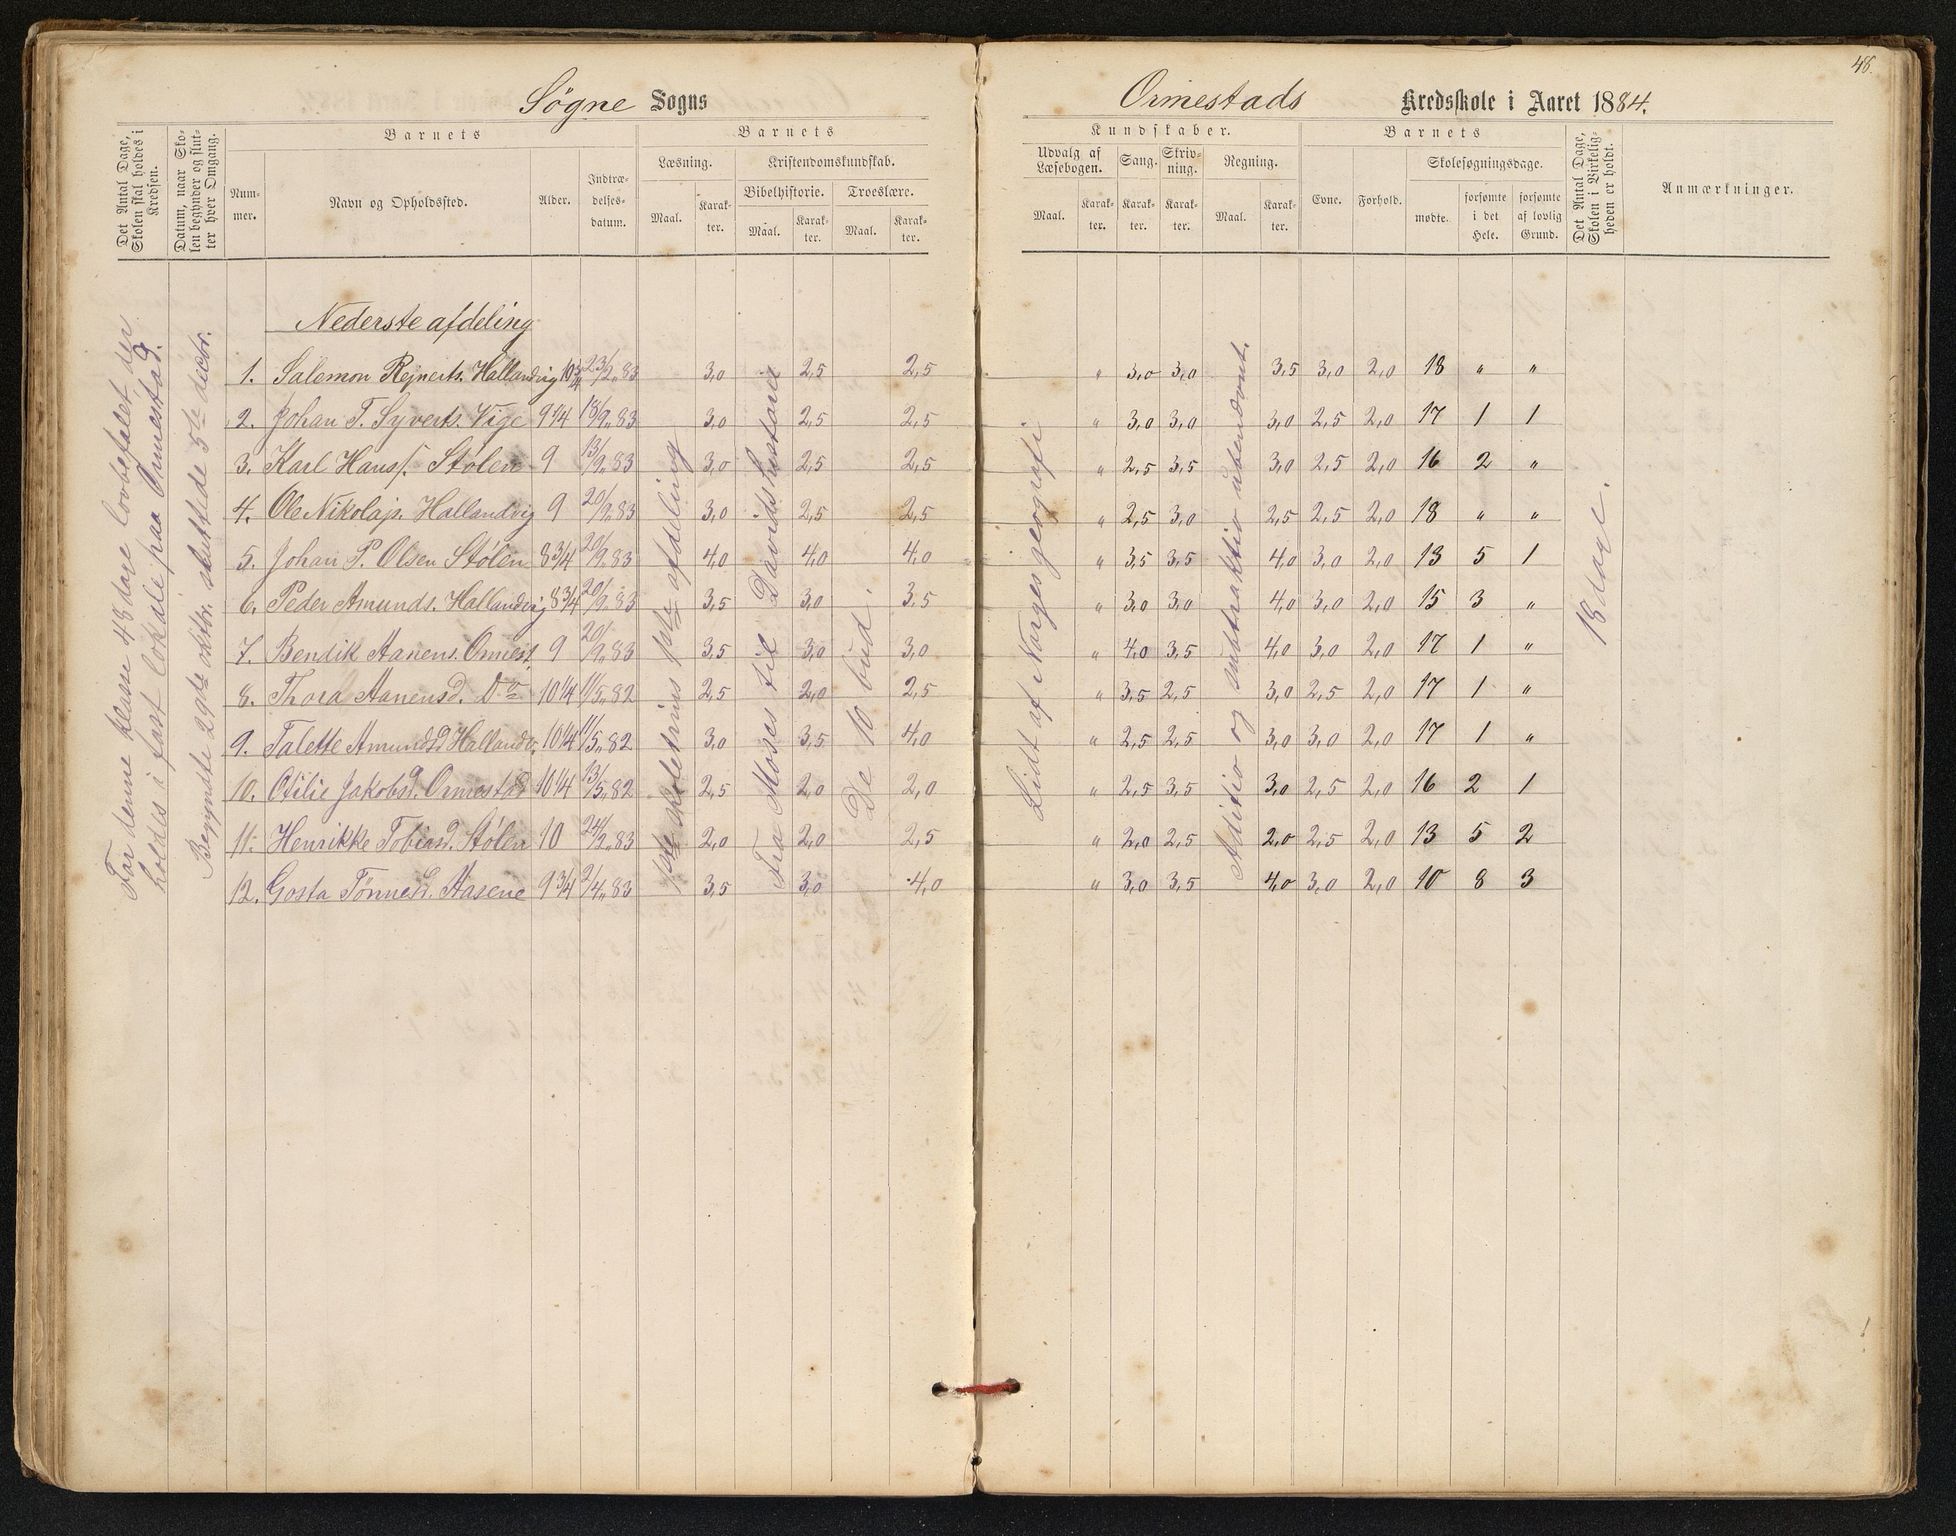 48.
Søgne Sogns
Ormestads Kredsskole i Aaret 1884.
Det Antal Dage, Skolen skal holdes i Kredsen.
Datum, naar Skolen begynder og slutter hver Omgang.
Barnets
Nummer.
Navn og Opholdssted.
Alder.
Indtrædelsesdatum.
Barnets
Læsning.
Maal.
Karakter.
Kristendomskundskab.
Bibelhistorie.
Maal.
Karakter.
Troeslære.
Maal.
Karakter.
Kundskaber.
Udvalg af Læsebogen.
Maal.
Karakter.
Sang.
Karakter.
Skrivning.
Karakter.
Regning.
Maal.
Karakter.
Barnets
Evne.
Forhold.
Skolesøgningsdage.
mødte.
forsømte i det Hele.
forsømte af lovlig Grund.
Det Antal Dage, Skolen i Virkeligheden er holdt.
Anmærkninger.
For denne klasse 48 dage lovbefalet, der
holdes i fast lokale paa Ormestad.
Begyndte 29de oktbr. sluttede 5te decbr.
1ste skoletrins 1ste afdeling
Fra Moses til Davids historie
De 10 bud.
Lidt af Norges geografi
Additio og subtraktio ubenævnt.
18 dage.
Nederste afdeling
1. Salemon Rejnerts. Hallandvig 10 3/4 23/2 83 3,0 2,5 2,5 " 3,0 3,0 3,5 3,0 2,0 18 " "
2. Johan T. Syverts. Vige 9 1/4 18/9 83 3,0 2,5 2,5 " 3,0 3,0 3,0 2,5 2,0 17 1 1
3. Karl Hanss. Stølen 9 13/9 83 3,0 2,5 2,5 " 2,5 3,5 3,0 2,5 2,0 16 2 "
4. Ole Nikolajs. Hallandvig 9 20/9 83 3,0 2,5 2,5 " 2,5 3,0 2,5 2,5 2,0 18 " "
5. Johan P. Olsen Stølen 8 3/4 20/9 83 4,0 4,0 4,0 " 3,5 3,5 4,0 3,0 2,0 13 5 1
6. Peder Amunds. Hallandvig 8 3/4 20/9 83 3,5 3,0 3,5 " 3,0 3,0 4,0 3,0 2,0 15 3 "
7. Bendik Aanens. Ormest. 9 20/9 83 3,5 3,0 3,0 " 4,0 3,5 4,0 3,0 2,0 17 1 "
8. Thora Aanensd. Do 10 1/4 11/5 82 2,5 2,0 2,5 " 3,5 2,5 3,0 2,5 2,0 17 1 "
9. Talette Amundsd Hallandv. 10 1/4 11/5 82 3,0 3,5 4,0 " 2,5 2,5 3,0 3,0 2,0 17 1 "
10. Otilie Jakobsd. Ormestad 10 1/4 13/5 82 2,5 2,0 2,0 " 2,5 3,5 3,0 2,5 2,0 16 2 1
11. Henrikke Tobiasd. Stølen 10 24/2 83 2,0 2,0 2,5 " 2,0 2,5 2,0 2,5 2,0 13 5 2
12. Gosta Tønnesd. Aasene 9 3/4 2/4 83 3,5 3,0 4,0 " 3,0 3,5 4,0 3,0 2,0 10 8 3